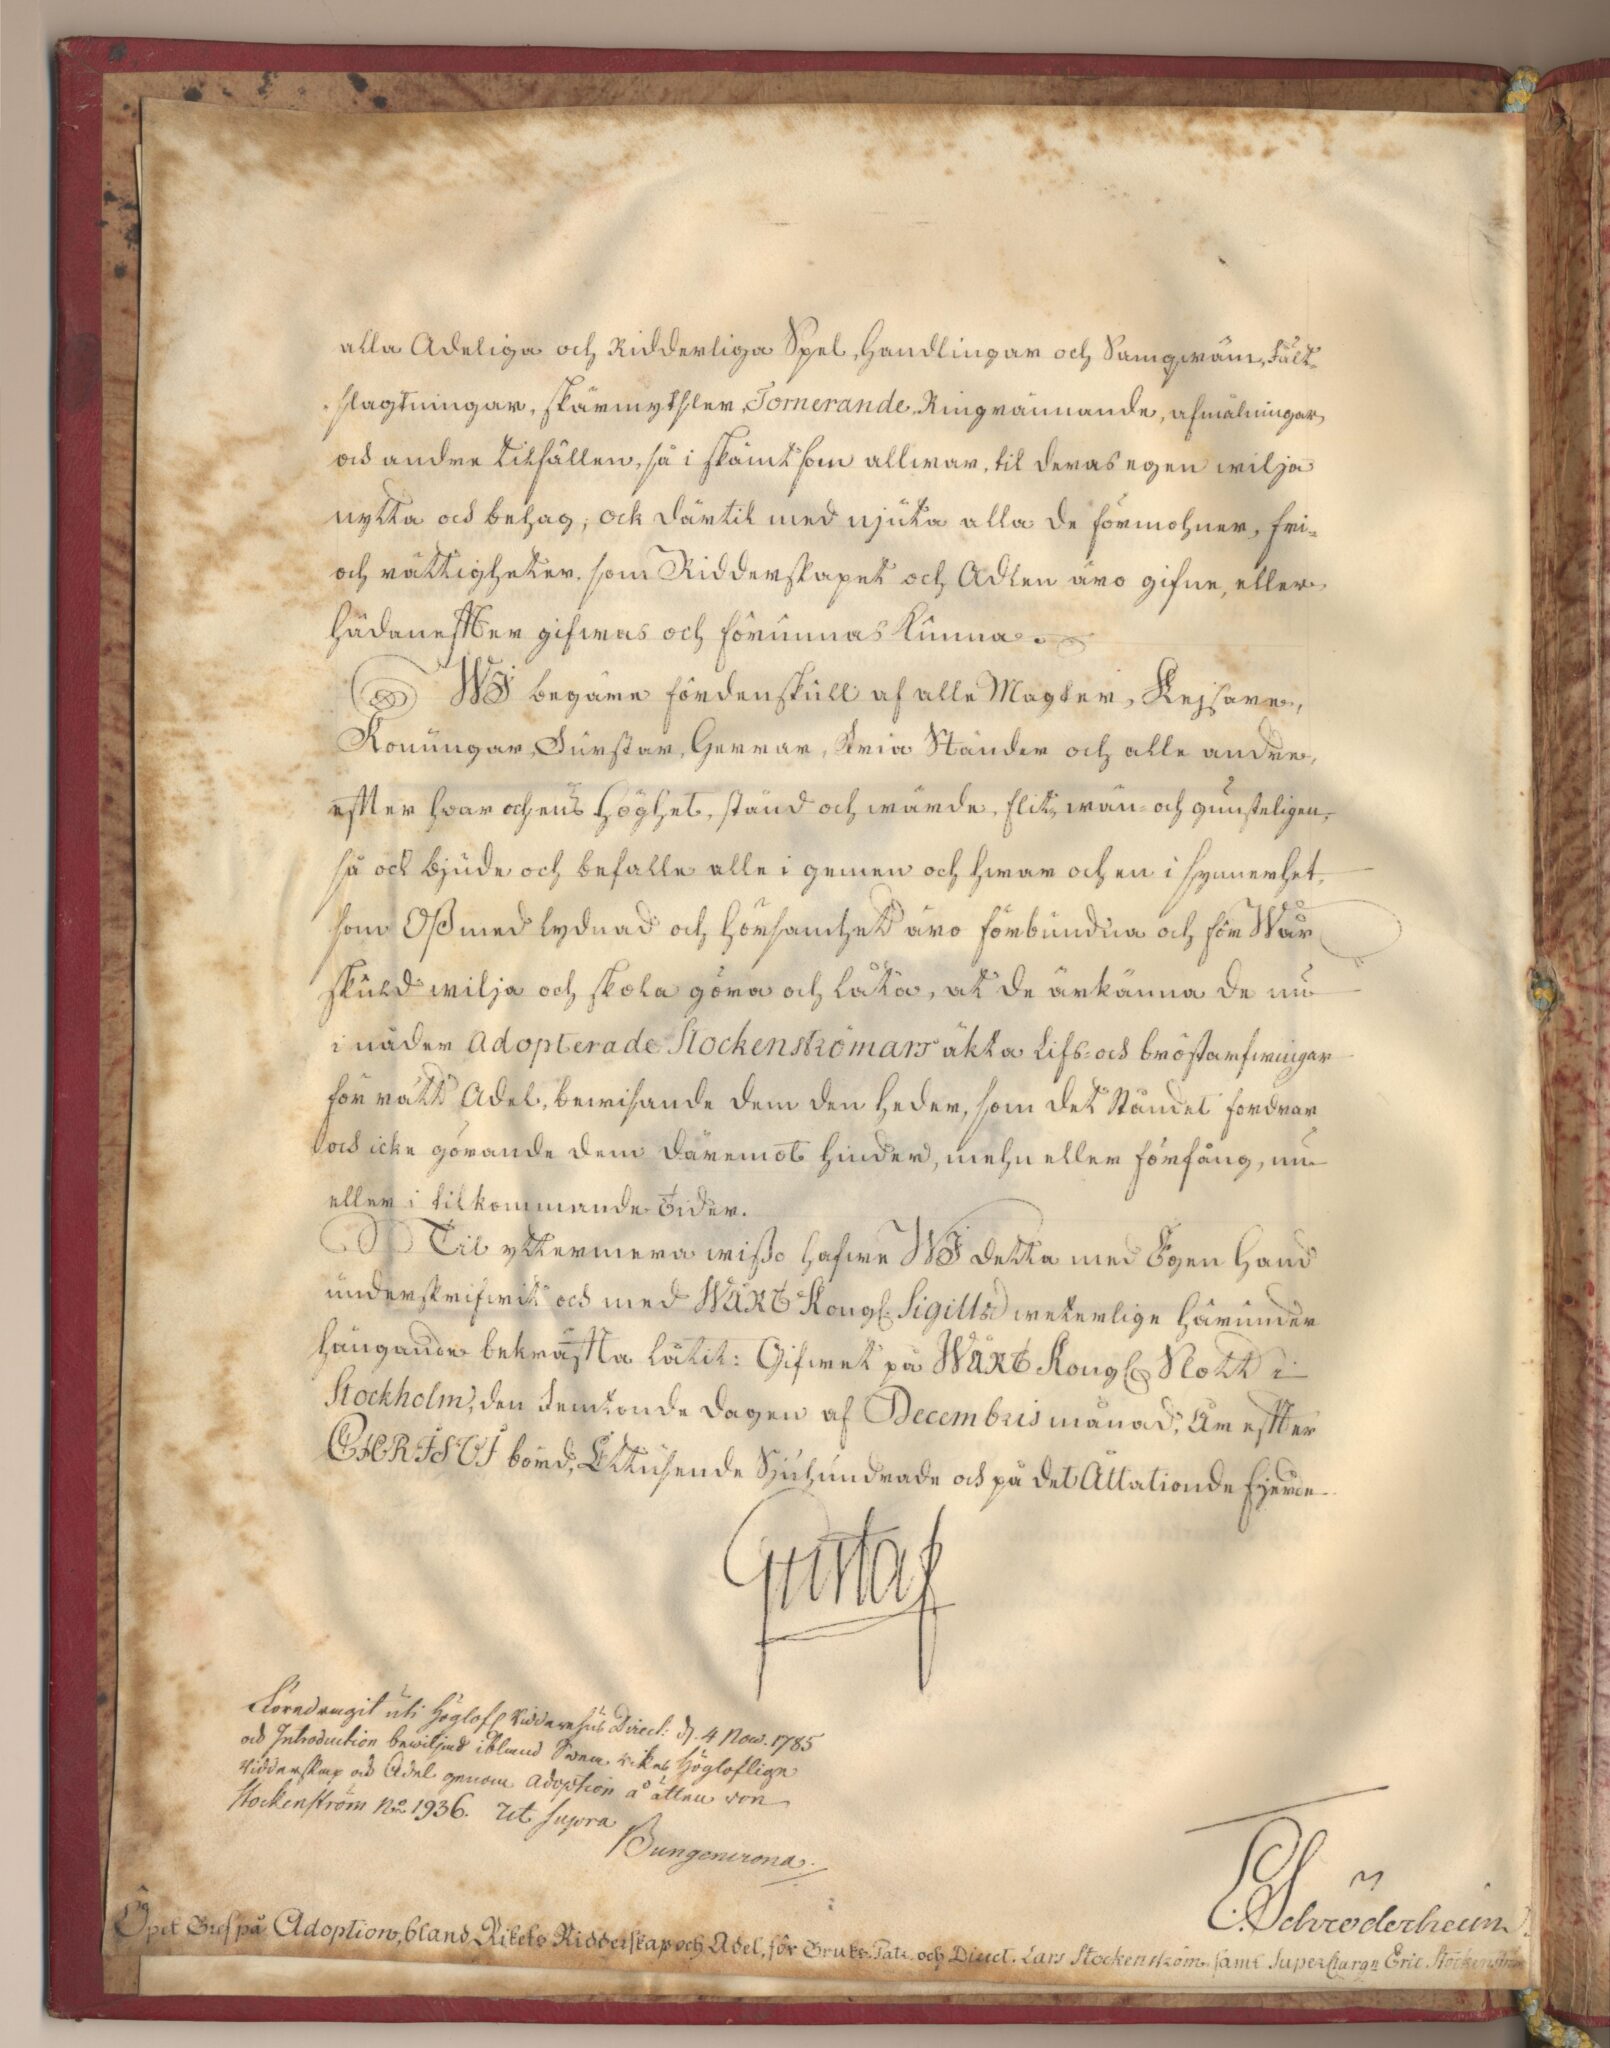 alla Adeliga och Ridderliga Spel, Handlingar och Samqwäm, Fält-
slagtningar, skärmytsler, Tornerande, Ringrännande, afmålningar,
och andre tilfällen, så i skämt som allwar, til deras egen wilja
nytta och behag; ock därtil med njuta alla de förmohner, fri-
och rättigheter, som Ridderskapet och Adlen äro gifne, eller
hädanefter gifwas och förunnas kunna.
WJ begäre fördenskull af alle Magter, Kejsare,
Konungar, Furstar, Herrar, Fria Ständer och alle andre,
efter hvar och ens höghet, stånd och wärde, flit, wän- och gunsteligen,
så ock bjude och befalle alle i gemen och hwar och en i synnerhet,
som Oß med lydnad och hörsamhet äro förbundna och för Wår
skuld wilja och skola göra och låta, at de ärkänna de nu
i nåder Adopterade Stockenströmars äkta Lifs- och bröstarfwingar
för rätt Adel, bewisande dem den heder, som det Ståndet fordrar
och icke görande dem däremot hinder, mehn eller förfång, nu
eller i tilkommande tider.
Til yttermera wißo hafwe WJ detta med Egen Hand
underskrifwit och med WÅRT Kongl. Sigill weterlige härunder
hängande bekräfta låtit: Gifwet på WÅRT Kongl. Slott i
Stockholm, den femtonde dagen af Decembris månad, År efter
CHRISTI börd, Ettusende Sjuhundrade och på det Åttationde fjerde
Gustaf
Föredragit uti Höglofl. Riddarhus Direct: d. 4 Nov. 1785
och Introduction bewiljad ibland Swea rikes Högloflige
ridderskap och Adel genom Adoption å ätten von
Stockenström No. 1936. Ut supra
Bungencrona.
E. Schröderheim
Öpet Bref på Adoption, bland Rikets Ridderskap och Adel, för Bruks-Patr. och Direct. Lars Stockenström, samt Supercargn Eric Stockenström